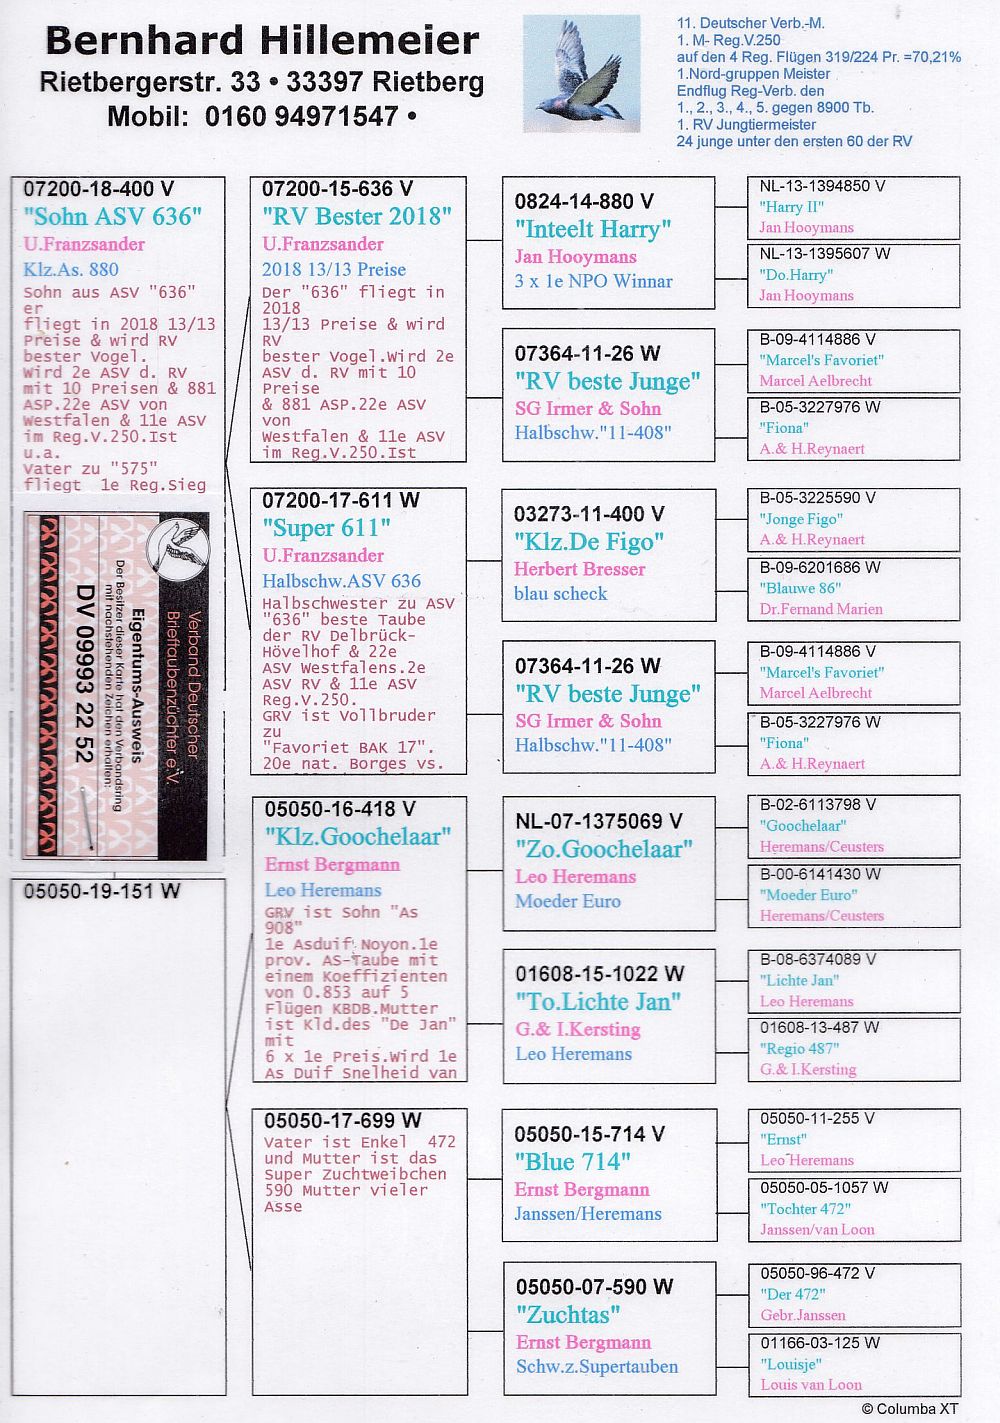 Bernhard Hillemeier
Rietbergerstr. 33 • 33397 Rietberg
Mobil:  0160 94971547 •
11. Deutscher Verb.-M.
1. M- Reg.V.250
auf den 4 Reg. Flügen 319/224 Pr. =70,21%
1.Nord-gruppen Meister
Endflug Reg-Verb. den
1., 2., 3., 4., 5. gegen 8900 Tb.
1. RV Jungtiermeister
24 junge unter den ersten 60 der RV
07200-18-400 V
"Sohn ASV 636"
U.Franzsander
Klz.As. 880
Sohn aus ASV "636"
er
fliegt in 2018 13/13
Preise & wird RV
bester Vogel.
Wird 2e ASV d. RV
mit 10 Preisen & 881
ASP.22e ASV von
Westfalen & 11e ASV
im Reg.V.250.Ist
u.a.
Vater zu "575"
fliegt  1e Reg.Sieg
Verband Deutscher
Brieftaubenzüchter e.V.
Eigentums-Ausweis
Der Besitzer dieser Karte hat den Verbandsring
mit nachstehenden Zeichen erhalten:
DV 09993 22 52
05050-19-151 W
07200-15-636 V
"RV Bester 2018"
U.Franzsander
2018 13/13 Preise
Der "636" fliegt in
2018
13/13 Preise & wird
RV
bester Vogel.Wird 2e
ASV d. RV mit 10
Preise
& 881 ASP.22e ASV
von
Westfalen & 11e ASV
im Reg.V.250.Ist
07200-17-611 W
"Super 611"
U.Franzsander
Halbschw.ASV 636
Halbschwester zu ASV
"636" beste Taube
der RV Delbrück-
Hövelhof & 22e
ASV Westfalens.2e
ASV RV & 11e ASV
Reg.V.250.
GRV ist Vollbruder
zu
"Favoriet BAK 17".
20e nat. Borges vs.
05050-16-418 V
"Klz.Goochelaar"
Ernst Bergmann
Leo Heremans
GRV ist Sohn "As
908"
1e Asduif Noyon.1e
prov. AS-Taube mit
einem Koeffizienten
von 0.853 auf 5
Flügen KBDB.Mutter
ist Kld.des "De Jan"
mit
6 x 1e Preis.Wird 1e
As Duif Snelheid van
05050-17-699 W
Vater ist Enkel  472
und Mutter ist das
Super Zuchtweibchen
590 Mutter vieler
Asse
0824-14-880 V
"Inteelt Harry"
Jan Hooymans
3 x 1e NPO Winnar
07364-11-26 W
"RV beste Junge"
SG Irmer & Sohn
Halbschw."11-408"
03273-11-400 V
"Klz.De Figo"
Herbert Bresser
blau scheck
07364-11-26 W
"RV beste Junge"
SG Irmer & Sohn
Halbschw."11-408"
NL-07-1375069 V
"Zo.Goochelaar"
Leo Heremans
Moeder Euro
01608-15-1022 W
"To.Lichte Jan"
G.& I.Kersting
Leo Heremans
05050-15-714 V
"Blue 714"
Ernst Bergmann
Janssen/Heremans
05050-07-590 W
"Zuchtas"
Ernst Bergmann
Schw.z.Supertauben
NL-13-1394850 V
"Harry II"
Jan Hooymans
NL-13-1395607 W
"Do.Harry"
Jan Hooymans
B-09-4114886 V
"Marcel's Favoriet"
Marcel Aelbrecht
B-05-3227976 W
"Fiona"
A.& H.Reynaert
B-05-3225590 V
"Jonge Figo"
A.& H.Reynaert
B-09-6201686 W
"Blauwe 86"
Dr.Fernand Marien
B-09-4114886 V
"Marcel's Favoriet"
Marcel Aelbrecht
B-05-3227976 W
"Fiona"
A.& H.Reynaert
B-02-6113798 V
"Goochelaar"
Heremans/Ceusters
B-00-6141430 W
"Moeder Euro"
Heremans/Ceusters
B-08-6374089 V
"Lichte Jan"
Leo Heremans
01608-13-487 W
"Regio 487"
G.& I.Kersting
05050-11-255 V
"Ernst"
Leo Heremans
05050-05-1057 W
"Tochter 472"
Janssen/van Loon
05050-96-472 V
"Der 472"
Gebr.Janssen
01166-03-125 W
"Louisje"
Louis van Loon
© Columba XT